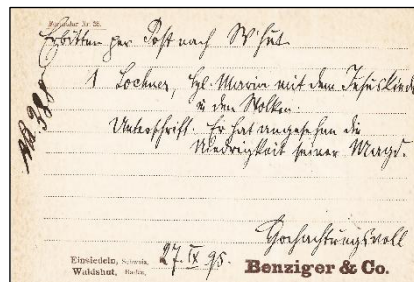 Formular Nr. 58.
Erbitten per Post nach W'hut
1 Lochner, hgl. Maria mit dem Jesuskinde
in den Wolken.
Unterschrift: Er hat angesehen die
Niedrigkeit seiner Magd.
No. 388
Hochachtungsvoll
27. IX 98.
Einsiedeln, Schweiz,
Waldshut, Baden,
Benziger & Co.